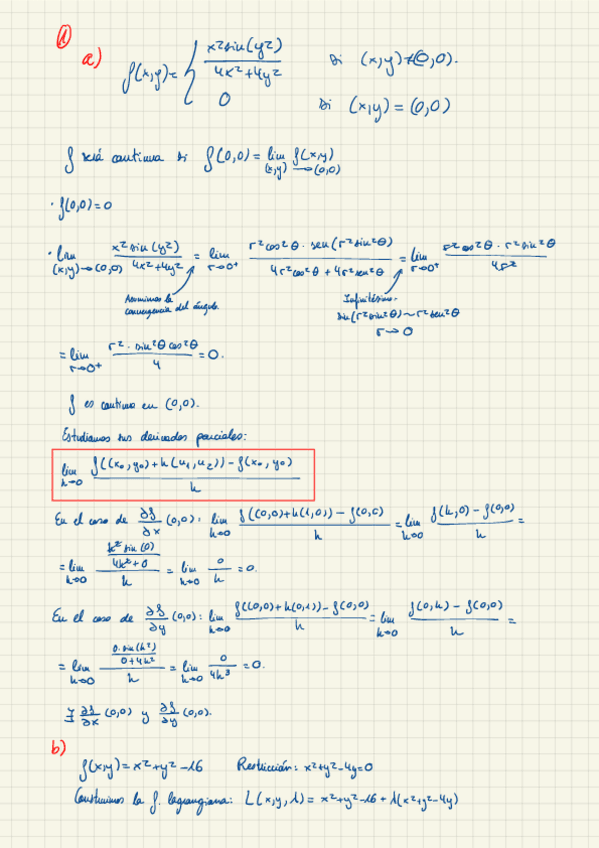 1
a) f(x,y) = { x²sin(y²) / 4x²+4y² si (x,y)≠(0,0).
0 si (x,y) = (0,0)
f será continua si f(0,0) = lim (x,y)→(0,0) f(x,y)
· f(0,0) = 0
· lim (x,y)→(0,0) x²sin(y²) / 4x²+4y² = lim r→0⁺ r²cos²θ · sen(r²sin²θ) / 4r²cos²θ + 4r²sen²θ = lim r→0⁺ r²cos²θ · r²sin²θ / 4r²
Asumimos la convergencia del ángulo
Infinitésimo.
sin(r²sin²θ) ~ r²sen²θ
r→0
= lim r→0⁺ r² · sin²θ cos²θ / 4 = 0.
f es continua en (0,0).
Estudiamos sus derivadas parciales:
lim h→0 f((x₀,y₀)+h(u₁,u₂)) − f(x₀,y₀) / h
En el caso de ∂f/∂x (0,0): lim h→0 f((0,0)+h(1,0)) − f(0,0) / h = lim h→0 f(h,0) − f(0,0) / h =
= lim h→0 (h² sin(0) / 4h²+0) / h = lim h→0 0/h = 0.
En el caso de ∂f/∂y (0,0): lim h→0 f((0,0)+h(0,1)) − f(0,0) / h = lim h→0 f(0,h) − f(0,0) / h =
= lim h→0 (0·sin(h²) / 0+4h²) / h = lim h→0 0/4h³ = 0.
∃ ∂f/∂x (0,0) y ∂f/∂y (0,0).
b)
f(x,y) = x²+y²−16 Restricción: x²+y²−4y=0
Construimos la f. lagrangiana: L(x,y,λ) = x²+y²−16 + λ(x²+y²−4y)